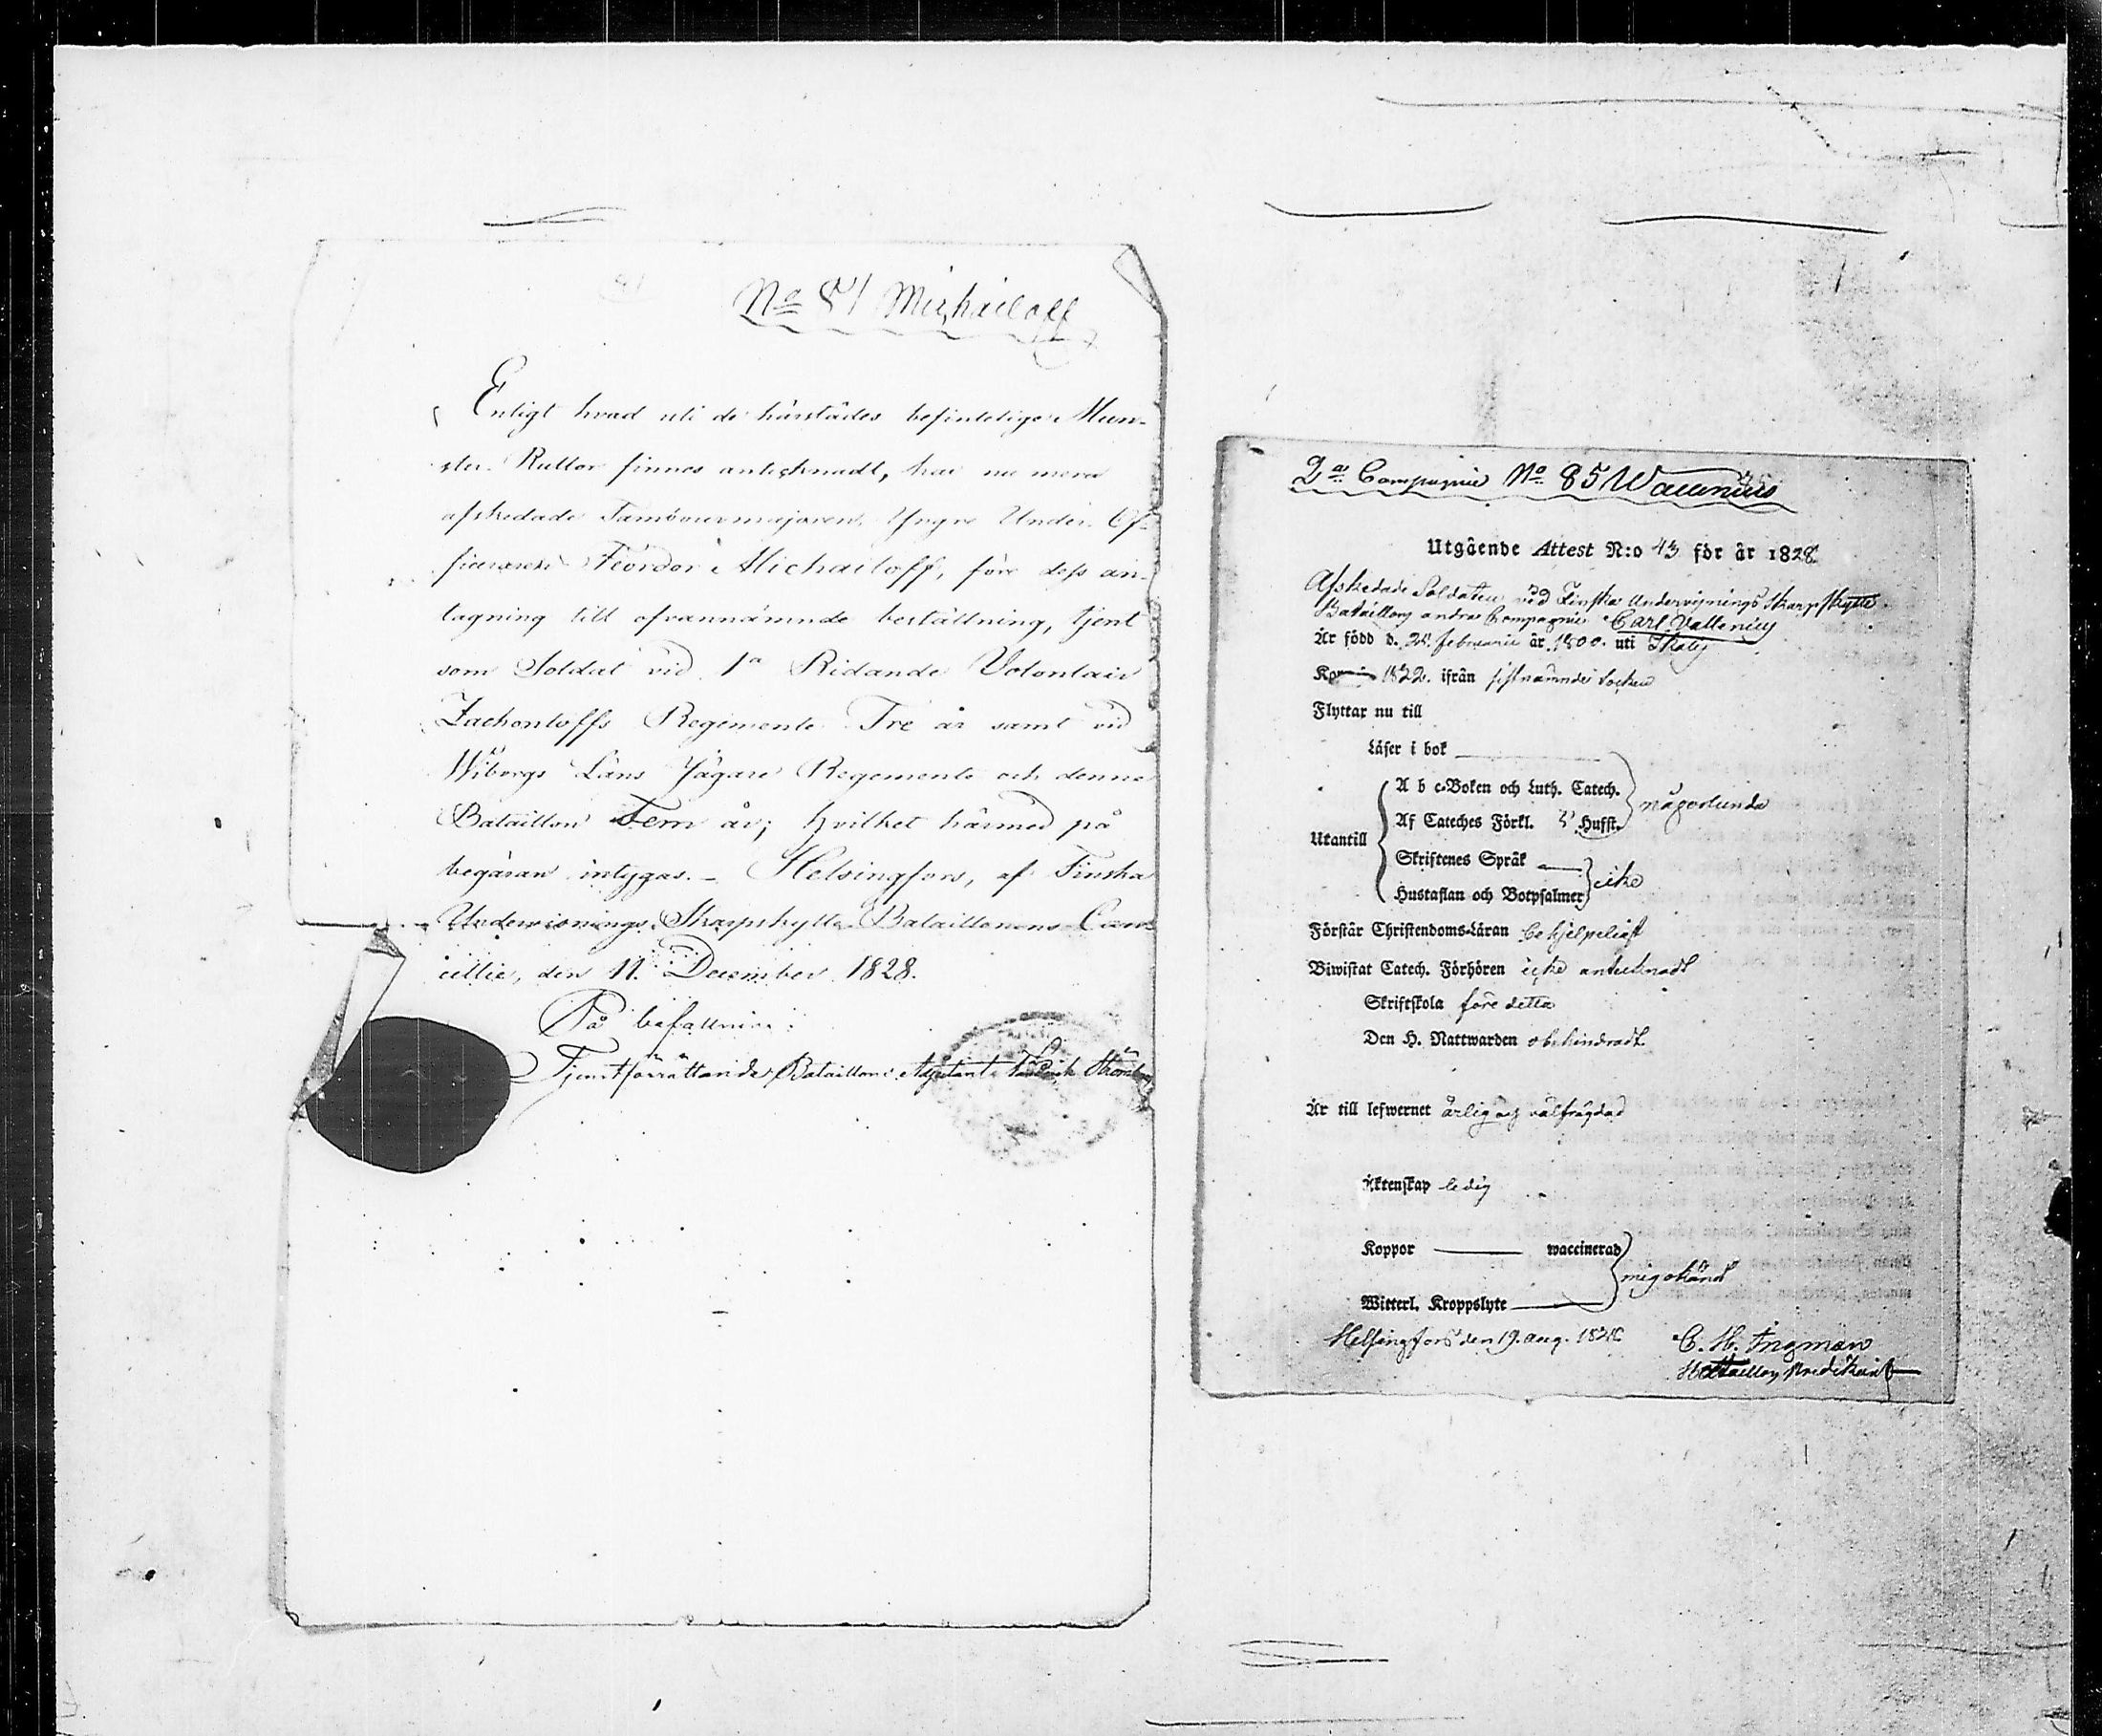 No 81 Michailoff
Enligt hvad uti de härstädes befinteliga Mun-
ster Rullor finnes antecknadt, har nu mera
afskedade Tambourmajoren, Yngre Under Of-
ficeraren Feodor Michailoff, före dess an-
tagning till ofvannämnde beställning, tjent
som Soldat vid 1a Ridande Volontair
Zachontoffs Regemente Tre år samt vid
Wiborgs Läns Jägare Regemente och denne
Bataillon Fem år; hvilket härmed på
begäran intygas. – Helsingfors, af Finska
Underwisnings Skarpskytte Bataillonens Can-
cellie, den 11 December 1828.
På befallning:
Tjenstförrättande Bataillons Adjutant
2as Compagnie No 85 Wallenius
Utgående Attest N:o 43 för år 1828
Afskedade Soldaten vid Finska Undervisnings Skarpskytte
Bataillons andra Compagnie Carl Vallenius
Är född d. 24 februarii år 1800. uti
1822. ifrån sistnämnde Socken
Flyttar nu till
Läser i bok
A b c-Boken och Luth. Catech.
någorlunda
Af Cateches Förkl. Hufst.
Utantill
Skriftenes Språk
icke
Hustaflan och Botpsalmer
Förstår Christendoms-Läran behjelpeligt
Biwistat Catech. Förhören icke antecknadt
Skriftskola före detta
Den H. Nattwarden obehindradt
Är till lefwernet ärlig och välfrägdad
Äktenskap ledig
Koppor waccinerad
mig okändt
Witterl. Kroppslyte
Helsingfors den 19. aug. 1828
C. H. Ingman
Bataillons Predikant